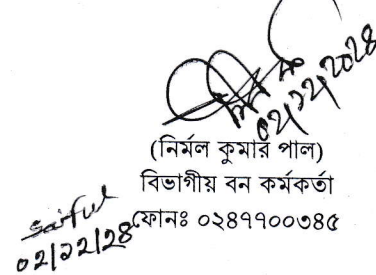 ০২/১২/২০২৪
(নির্মল কুমার পাল)
বিভাগীয় বন কর্মকর্তা
ফোনঃ ০২৪৭৭০০৩৪৫
Saiful
০২/১২/২৪